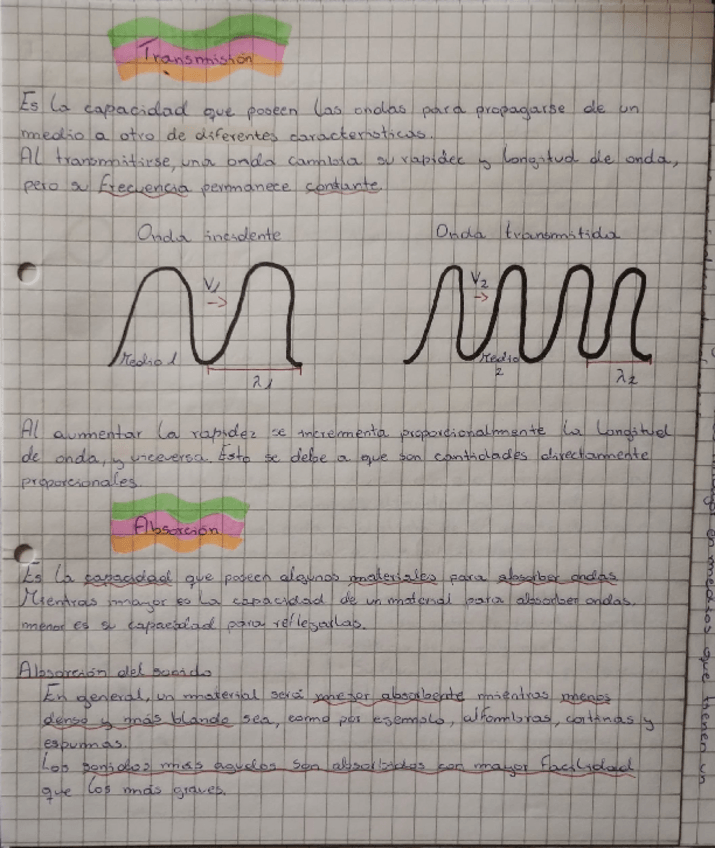 Transmisión
Es la capacidad que poseen las ondas para propagarse de un
medio a otro de diferentes características.
Al transmitirse, una onda cambia su rapidez y longitud de onda,
pero su frecuencia permanece contante.
Onda incidente
Onda transmitida
V1
V2
Medio 1
Medio
2
λ1
λ2
Al aumentar la rapidez se incrementa proporcionalmente la longitud
de onda, y viceversa. Esto se debe a que son cantidades directamente
proporcionales.
Absorción
Es la capacidad que poseen algunos materiales para absorber ondas
Mientras mayor es la capacidad de un material para absorber ondas,
menor es su capacidad para reflejarlas.
Absorción del sonido
En general, un material será mejor absorbente mientras menos
denso y más blando sea, como por ejemplo, alfombras, cortinas y
espumas.
Los sonidos más agudos son absorbidos con mayor facilidad
que los más graves.
en medios que tienen un